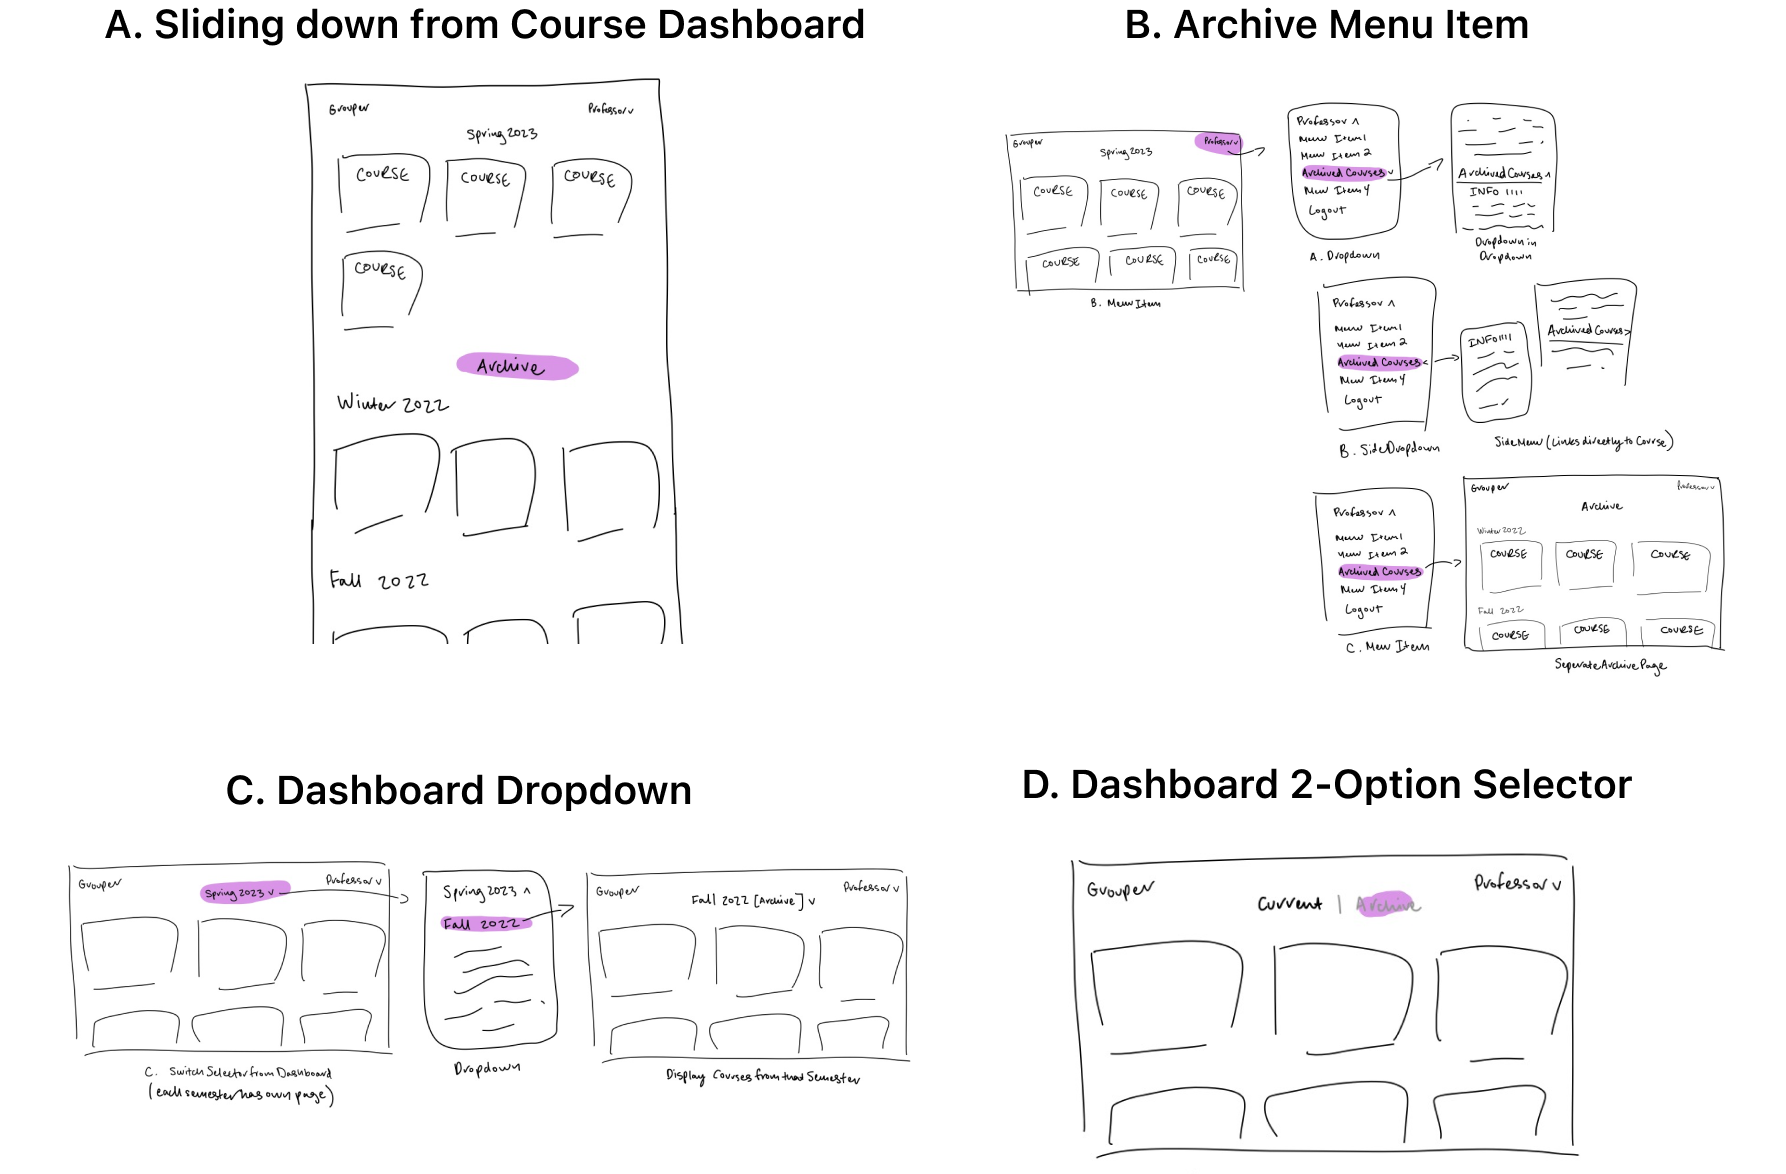 A. Sliding down from Course Dashboard
Grouper
Professor v
Spring 2023
COURSE
COURSE
COURSE
COURSE
Archive
Winter 2022
Fall 2022
B. Archive Menu Item
Grouper
Professor v
Spring 2023
COURSE
COURSE
COURSE
COURSE
COURSE
COURSE
B. Menu Item
Professor ^
Menu Item 1
Menu Item 2
Archived Courses v
Menu Item 4
Logout
A. Dropdown
Archived Courses ^
INFO !!!!
Dropdown in
Dropdown
Professor ^
Menu Item 1
Menu Item 2
Archived Courses <
Menu Item 4
Logout
B. Side Dropdown
INFO !!!!
Archived Courses >
Side Menu (Links directly to Course)
Professor ^
Menu Item 1
Menu Item 2
Archived Courses
Menu Item 4
Logout
C. Menu Item
Grouper
Professor v
Archive
Winter 2022
COURSE
COURSE
COURSE
Fall 2022
COURSE
COURSE
COURSE
Seperate Archive Page
C. Dashboard Dropdown
Grouper
Spring 2023 v
Professor v
C. Switch Selector from Dashboard
(each semester has own page)
Spring 2023 ^
Fall 2022
Dropdown
Grouper
Professor v
Fall 2022 [Archive] v
Display Courses from that Semester
D. Dashboard 2-Option Selector
Grouper
Professor v
Current | Archive